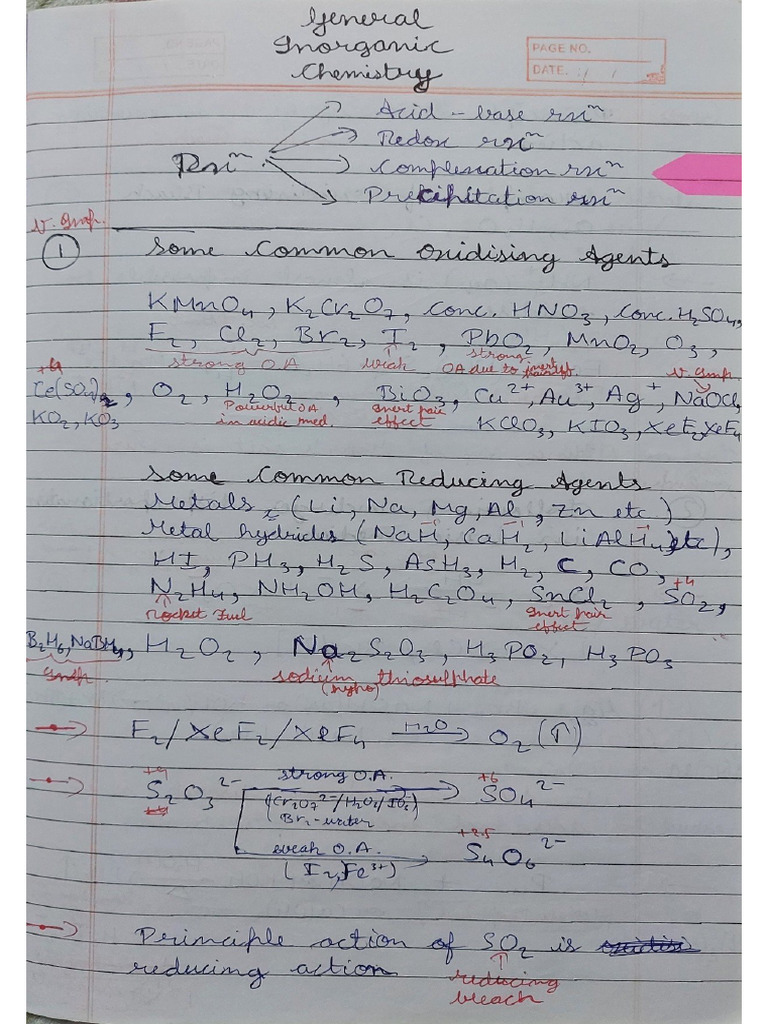 General
Inorganic
Chemistry
PAGE NO.
DATE: / /
Rxⁿ → Acid - base rxⁿ
→ Redox rxⁿ
→ Complexation rxⁿ
→ Precipitation rxⁿ
V. Imp.
① Some Common Oxidising Agents
KMnO₄, K₂Cr₂O₇, Conc. HNO₃, Conc. H₂SO₄,
F₂, Cl₂, Br₂, I₂, PbO₂, MnO₂, O₃,
strong OA weak strong OA due to inert pair effect. V. Imp
+4
Ce(SO₄)₂, O₂, H₂O₂, BiO₃, Cu²⁺, Au³⁺, Ag⁺, NaOCl,
Powerful OA in acidic med. Inert pair effect
KO₂, KO₃ KClO₃, KIO₃, XeF₂, XeF₄
Some Common Reducing Agents
Metals, (Li, Na, Mg, Al, Zn etc)
Metal hydrides (NaH, CaH₂, LiAlH₄, etc),
HI, PH₃, H₂S, AsH₃, H₂, C, CO,
N₂H₄, NH₂OH, H₂C₂O₄, SnCl₂, SO₂,
+4
Rocket Fuel Inert pair effect
B₂H₆, NaBH₄, H₂O₂, Na₂S₂O₃, H₃PO₂, H₃PO₃
Imp. sodium thiosulphate
(hypo)
→ F₂/XeF₂/XeF₄ —H₂O→ O₂(↑)
→ S₂O₃²⁻ —strong O.A.→ SO₄²⁻
+6
(Cr₂O₇²⁻/H₂O₂/IO₃⁻)
Br₂-water
weak O.A. → S₄O₆²⁻
+2.5
(I₂, Fe³⁺)
→ Principle action of SO₂ is
reducing action
reducing
bleach